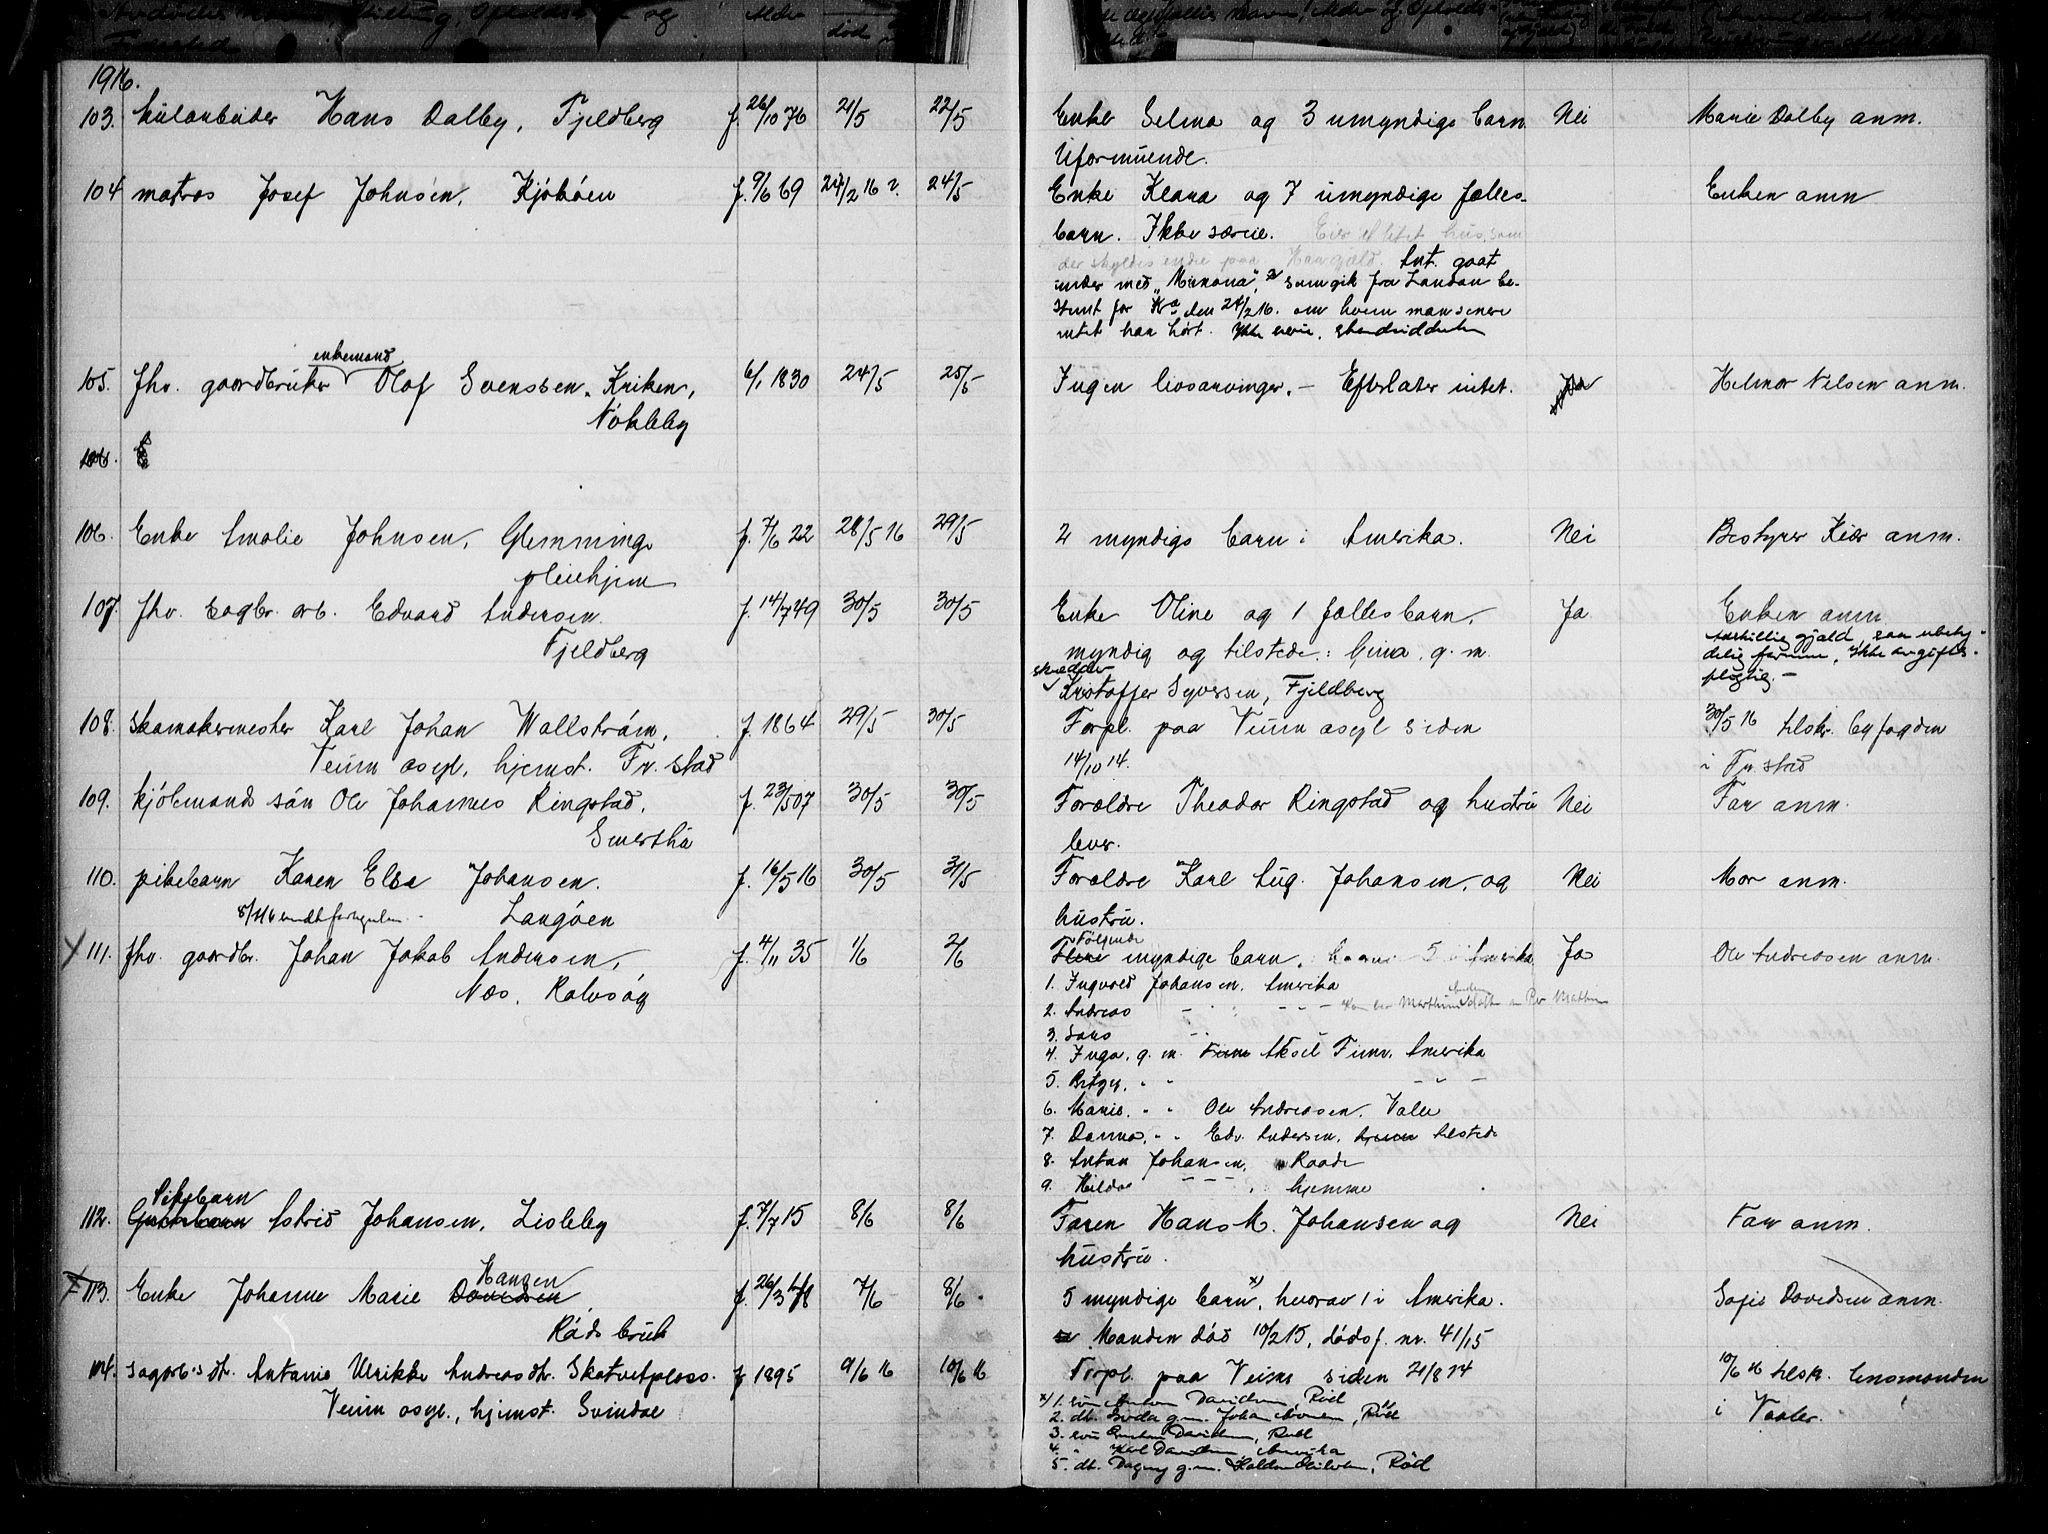 1916.
103. Kularbeider Hans Dalby, Fjeldberg f. 26/10 76 21/5 22/5 Enke Selma og 3 umyndige barn Nei Marie Dalby anm.
Uformuende.
104 matros Josef Johnsen, Kjøbøen f. 9/6 69 24/2 16 ? 24/5 Enke Klara og 7 umyndige fælles- Enken anm
barn. Ikke særeie. Eier et litet hus, som
der skyldes endel paa Ant. gaat
under med "Minona", som gik fra London be-
stemt for Kra den 24/2 16. om hvem man senere
intet har hørt. Ikke
enkemand
105. fhv. gaardbruker Olaf Svenssen, Kriken, 6/1 1830 24/5 25/5 Ingen livsarvinger. - Efterlater intet. Ja Helmer Nilsen anm.
Nøkleby
106.
106. Enke Amalie Johnsen, Glemminge f. 7/6 22 28/5 16 29/5 2 myndige barn i Amerika. Nei Bestyrer Kiær anm.
pleiehjem
107. fhv. sagbr. arb. Edvard Andersen. f. 14/7 49 30/5 30/5 Enke Oline og 1 fællesbarn, Ja Enken anm
Fjeldberg myndig og tilstede: Gina, g. m.
gjæld, saa ubety-
delig formue. Ikke avgifts-
pligtig. -
skrædder
Kristoffer Syversen, Fjeldberg
108. Skomakermester Karl Johan Wallstrøm, f. 1864 29/5 30/5 Forpl. paa Veum asyl siden 30/5 16 tilskr. byfogden
Veum asyl, hjemst. Fr.stad 14/10 14. i Fr.stad
109. kjølmands søn Ole Johannes Ringstad, f. 23/5 07 30/5 30/5 Forældre Theodor Ringstad og hustru Nei Far anm.
Smertha lever.
110. pikebarn Karen Elsa Johansen. f. 16/5 16 30/5 31/5 Forældre Karl Aug. Johansen, og Nei Mor anm.
Langøen hustru.
111. fhv. gaardbr. Johan Jakob Andersen, f. 4/11 35 1/6 2/6 Følgende myndige barn, 5 i Amerika Ja Ole Andreassen anm.
Næs, Rolvsøy
1. Ingvald Johansen, Amerika
2. Andreas - -
3. Lars
4. Inga, g. m. Aksel Finn, Amerika
5. Betzy, " " - " -
6. Marie, " " Ole Andreassen, Valle
7. Danna, " " Edv. Andersen, tilstede
8. Anton Johansen, Raade
9. Hilda - - - hjemme
Pikebarn
112. Guttebarn Astrid Johansen, Lisleby f. 7/7 15 8/6 8/6 Faren Hans M. Johansen og Nei Far anm.
hustru.
Hansen
113. Enke Johanne Marie Davidsen, f. 26/3 48 7/6 8/6 5 myndige barn x), hvorav 1 i Amerika. Sofie Davidsen anm.
Røds bruk Manden død 10/2 15, dødsf. nr. 41/15
114. sagarb.s dt. Antonie Ulrikke Andreasdt. Skotvetplass. f 1895 9/6 16 10/6 16 Forpl. paa Veum siden 21/8 14 10/6 16 tilskr. lensmanden
Veum asyl., hjemst. Svindal i Vaaler.
x) 1. søn Anton Davidsen, Rød
2. dt. g.m. Johan, Rød
3. søn Davidsen, Rød
4. " Karl Davidsen, Amerika
5. dt. Dagny g.m., Rød